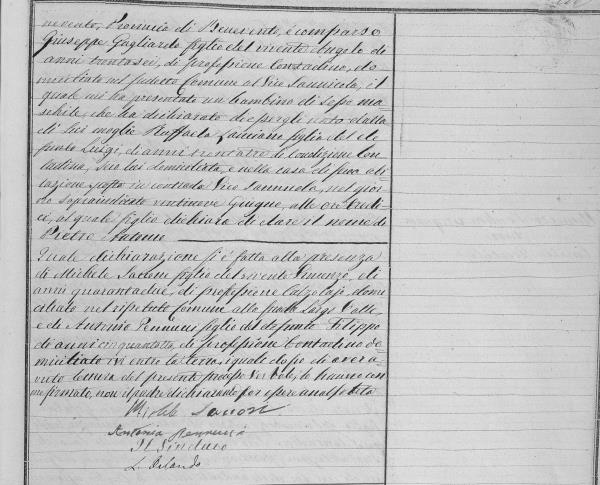 nevento, Provincia di Benevento, è comparso
Giuseppe Gagliardo figlio del vivente Angelo di
anni trentasei, di professione Contadino, do
miciliato nel sudetto Comune al Vico Sannicola, il
quale mi ha presentato un bambino di sesso ma
schile, che ha dichiarato essergli nato dalla
di lui moglie Raffaela figlia del de
funto Luigi, di anni di condizione Con
tadina, seco lui domiciliata, e nella casa di sua abi
tazione, posta in contrada Vico Sannicola, nel gior
no sopraindicato ventinove Giugno, alle ore tredi
ci, al quale figlio dichiara di dare il nome di
Pietro
Quale dichiarazione si è fatta alla presenza
di Michele figlio del vivente Vincenzo, di
anni quarantadue, di professione Calzolajo, domi
ciliato nel ripetuto Comune alla strada Largo Valle,
e di Antonio Pennucci figlio del defunto Filippo
di anni cinquantotto, di professione Contadino do
miciliato ivi entro la terra, i quali dopo di aver a
vuto lettura del presente processo Verbale, lo hanno con
me firmato, non il padre dichiarando per essere analfabeta
Michele
Antonio Pennucci
Il Sindaco
L. Orlando